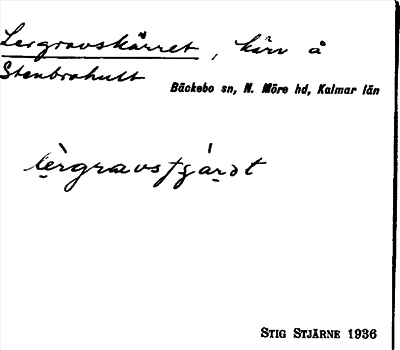 Lergravskärret, kärr å
Stenbrohult
Bäckebo sn, N. Möre hd, Kalmar län
STIG STJÄRNE 1936